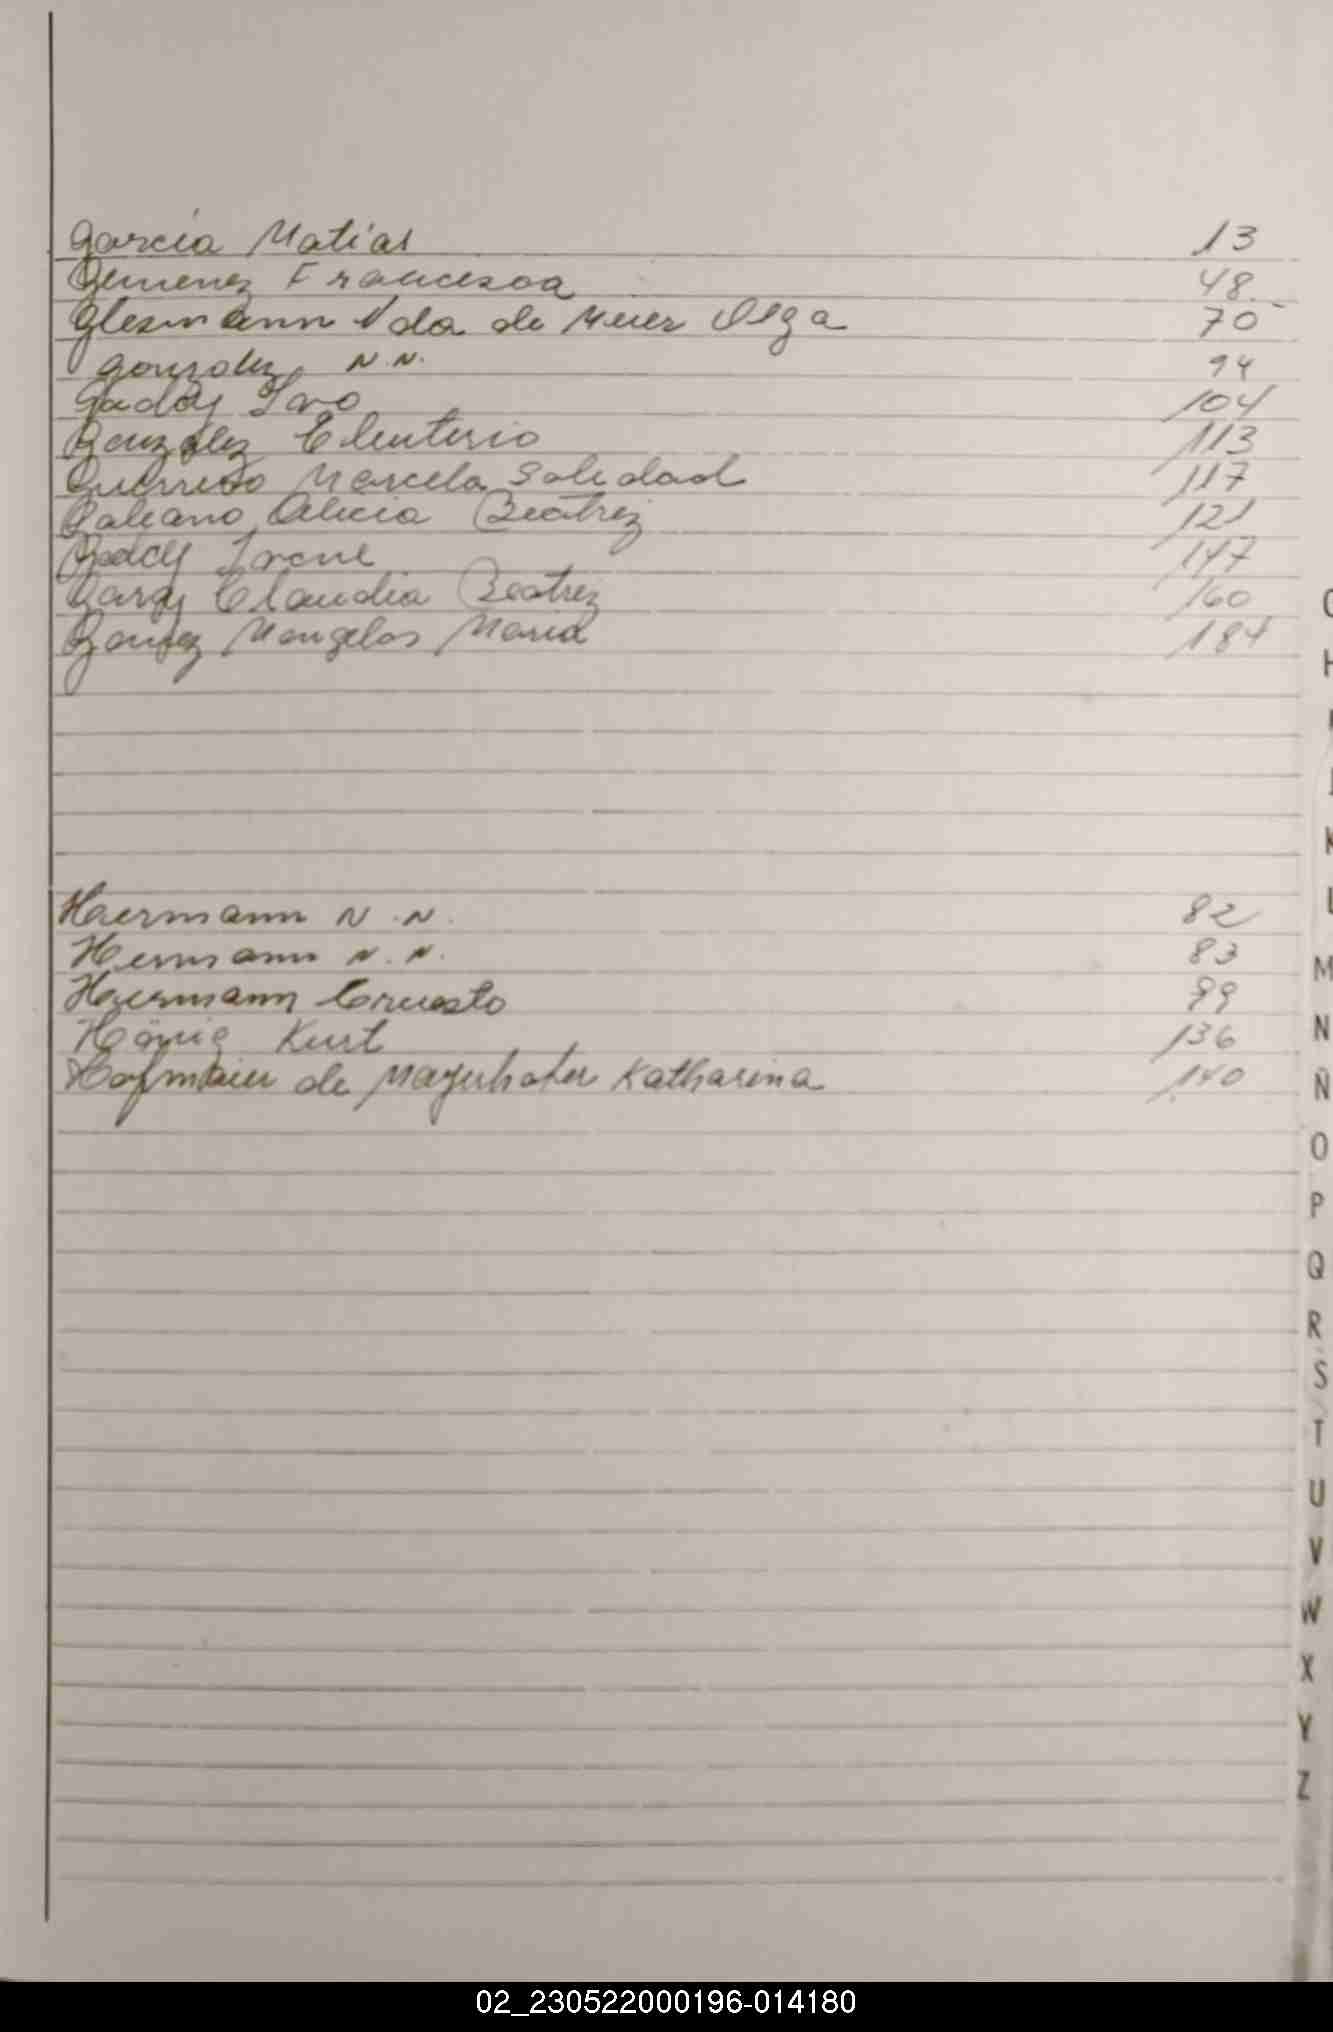 García Matias 13
Gimenez Francesca 48
Glesmann Vda de Meier Olga 70
Gonzalez N.N. 94
Godoy Ivo 104
González Eleuterio 113
Guerrero Marcela Soledad 117
Galeano Alicia Beatriz 121
Godoy Irene 147
Claudia Beatriz 160
Mongelos Maria 184
Haermann N.N. 82
Hermann N.N. 83
Haermann Ernesto 99
König Kurt 136
Hofmaier de Mayerhofer Katharina 140
H
K
L
M
N
Ñ
O
P
Q
R
S
T
U
V
W
X
Y
Z
02_230522000196-014180